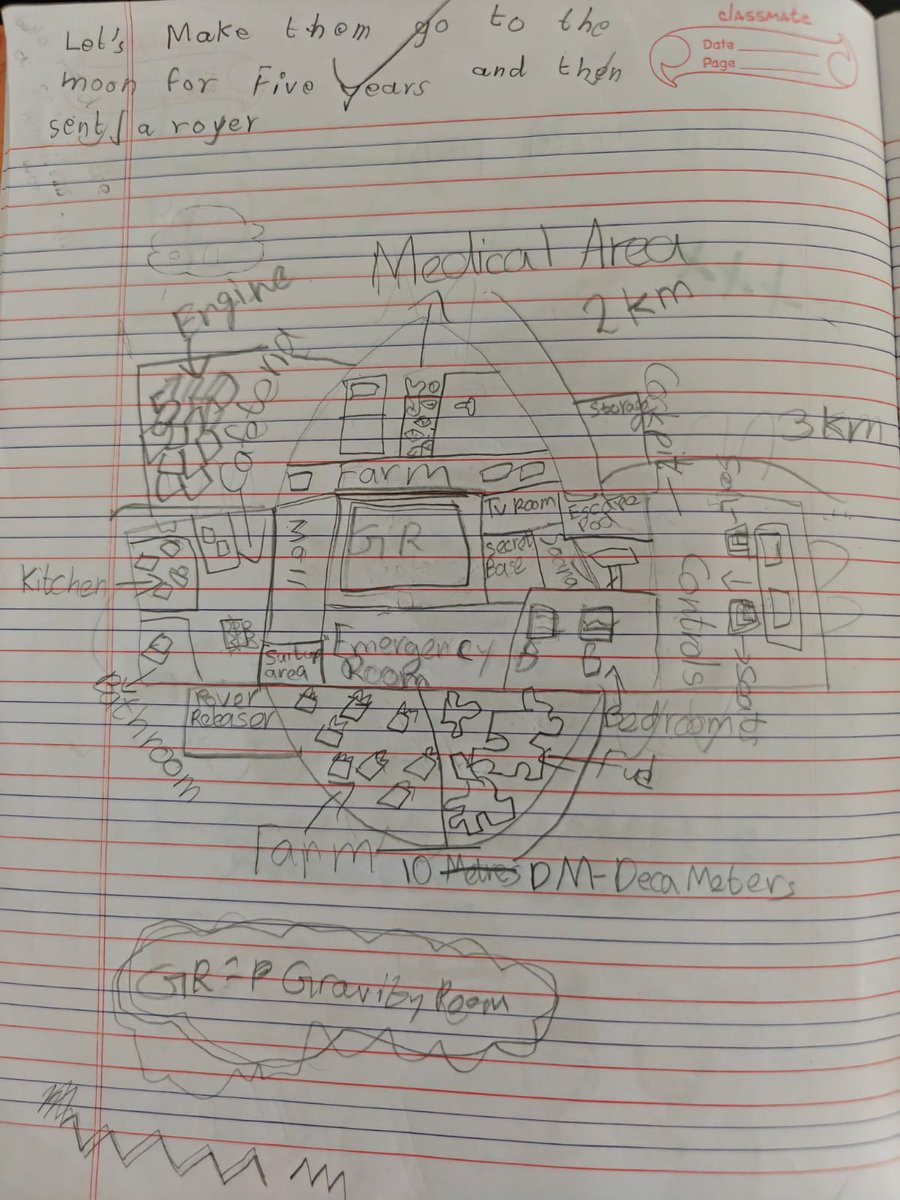 classmate
Date
Page
Let's Make them go to the
moon for Five Years and then
sent a rover
Medical Area
2 km
Engine
Cafeteria
Storage
Cockpit
3 km
Farm
Tv Room
Escape
Pod
GR
Secret
Base
Kitchen
Controls
Seat
Seat
Suitup
area
Emergency
Room
B
B
Power
Releaser
Bedrooms
Farm
10 Metres DM-Deca Meters
GR => Gravity Room